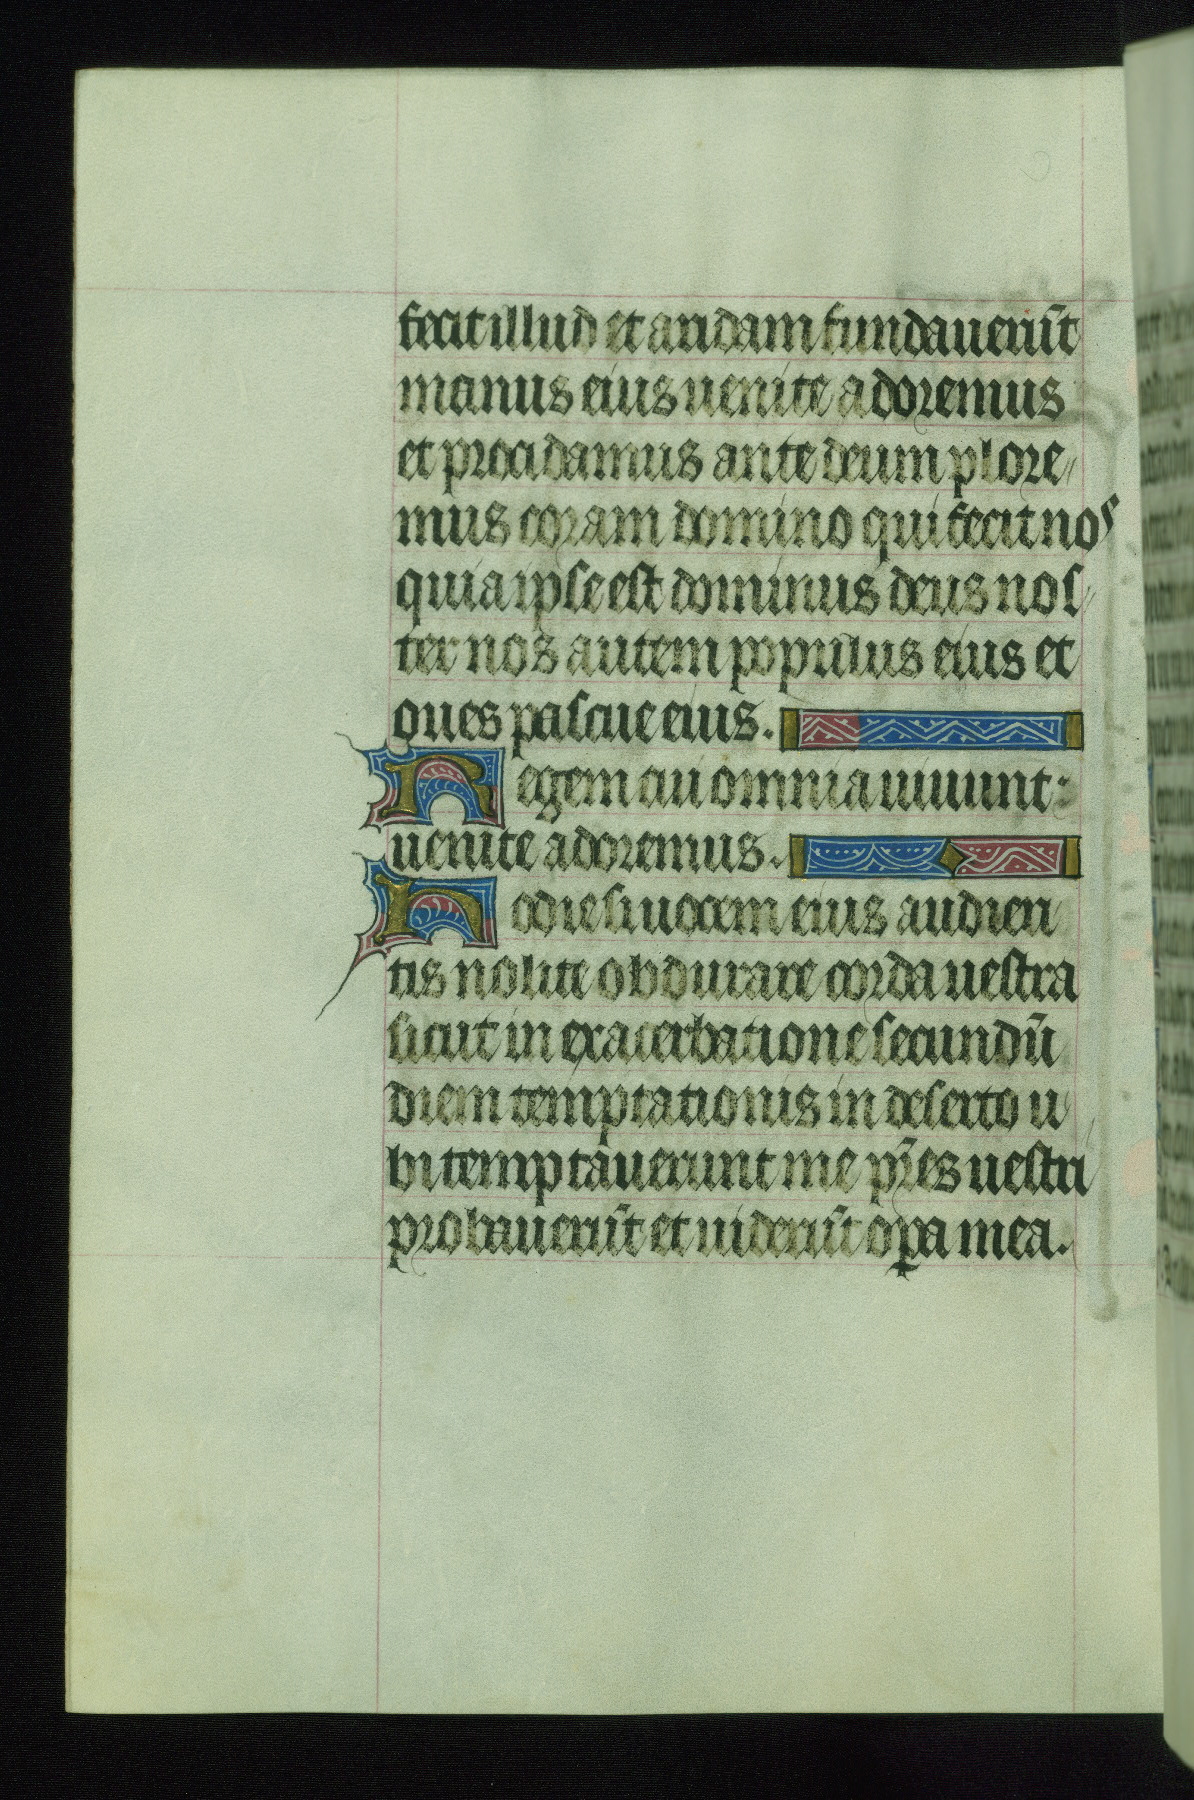 fecit illud et aridam fundauerūt
manus eius uenite adoremus
et procidamus ante deum plore
mus coram domino qui fecit nos
quia ipse est dominus deus nos
ter nos autem populus eius et
oues pascue eius.
Regem cui omnia uiuunt:
uenite adoremus.
Hodie si uocem eius audieri
tis nolite obdurare corda uestra
sicut in exacerbatione secundū
diem temptationis in deserto u
bi temptauerunt me pr̄es uestri
probauerūt et uiderūt oꝑa mea.